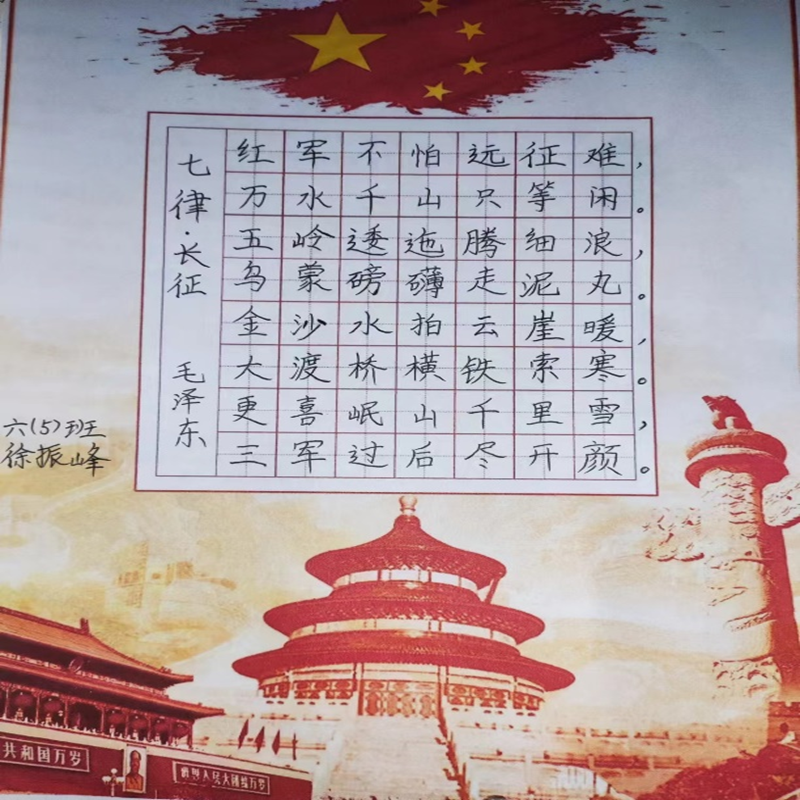 七律·长征
毛泽东
红军不怕远征难，
万水千山只等闲。
五岭逶迤腾细浪，
乌蒙磅礴走泥丸。
金沙水拍云崖暖，
大渡桥横铁索寒。
更喜岷山千里雪，
三军过后尽开颜。
六(5)班
徐振峰
共和国万岁
世界人民大团结万岁